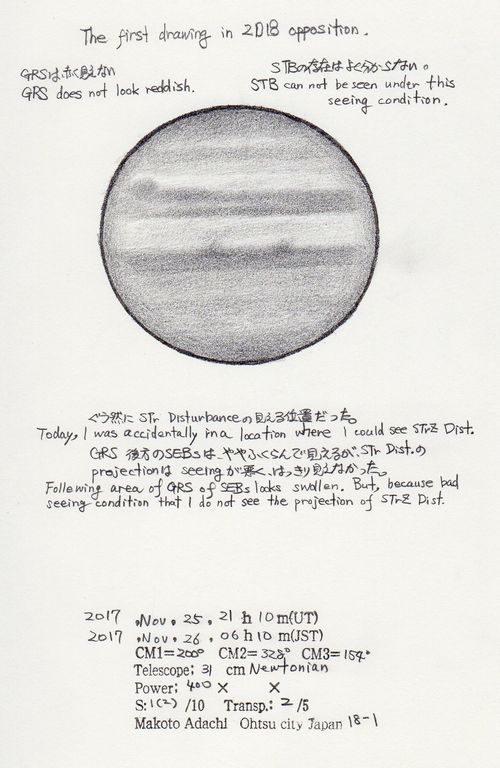 The first drawing in 2018 opposition.
GRSは赤く見えない
GRS does not look reddish.
STBの存在はよく分からない。
STB can not be seen under this
seeing condition.
ぐう然に STr Disturbanceの見える位置だった。
Today, I was accidentally in a location where I could see STrZ Dist.
GRS 後方のSEBsは、ややふくらんで見えるが、STr Dist.の
projectionは seeingが悪く、はっきり見えなかった。
Following area of GRS of SEBs looks swollen. But, because bad
seeing condition that I do not see the projection of STrZ Dist.
2017 . Nov. 25 . 21 h 10 m(UT)
2017 . Nov. 26 . 06 h 10 m(JST)
CM1=200° CM2=328° CM3=154°
Telescope: 31 cm Newtonian
Power: 400 × ×
S: 1(2) /10 Transp.: 2 /5
Makoto Adachi Ohtsu city Japan 18-1